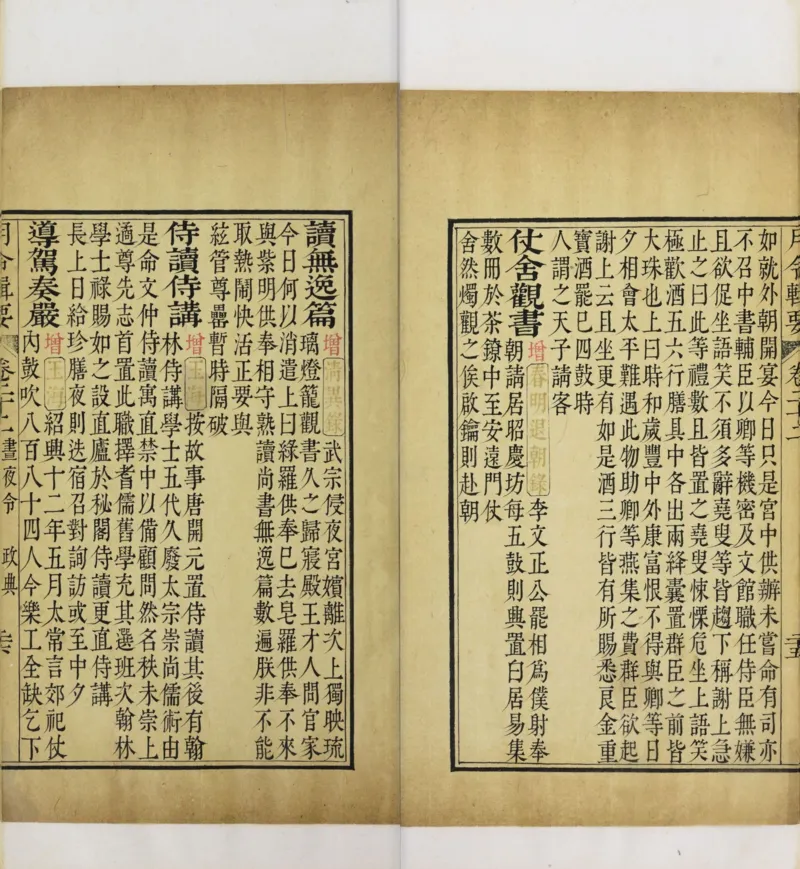 月令輯要 卷二十二 二十五
如就外朝開宴今日只是宮中供辦未嘗命有司亦
不召中書輔臣以卿等機密及文館職任侍臣無嫌
且欲促坐語笑不須多辭堯叟等皆趨下稱謝上急
止之曰此等禮數且皆置之堯叟悚慄危坐上語笑
極歡酒五六行膳具中各出兩絳囊置群臣之前皆
大珠也上曰時和歲豐中外康富恨不得與卿等日
夕相會太平難遇此物助卿等燕集之費群臣欲起
謝上云且坐更有如是酒三行皆有所賜悉良金重
寶酒罷已四鼓時
人謂之天子請客
仗舍觀書 增 春明退朝錄 李文正公罷相爲僕射奉
朝請居昭慶坊每五鼓則興置白居易集
數冊於茶鐐中至安遠門仗
舍然燭觀之俟啟鑰則赴朝
讀無逸篇 增 武宗侵夜宮嬪離次上獨映琉
璃燈籠觀書久之歸寢殿王才人問官家
今日何以消遣上曰綠羅供奉已去皂羅供奉不來
與紫明供奉相守熟讀尚書無逸篇數遍朕非不能
取熱鬧快活正要與
絃管尊罍暫時隔破
侍讀侍講 增 按故事唐開元置侍讀其後有翰
林侍講學士五代久廢太宗崇尚儒術由
是命文仲侍讀寓直禁中以備顧問然名秩未崇上
適尊先志首置此職擇耆儒舊學充其選班次翰林
學士祿賜如之設直廬於秘閣侍讀更直侍講
長上日給珍膳夜則迭宿召對詢訪或至中夕
導駕奏嚴 增 紹興十二年五月太常言郊祀仗
內鼓吹八百八十四人今樂工全缺乞下
月令輯要 卷二十二 晝夜令 政典